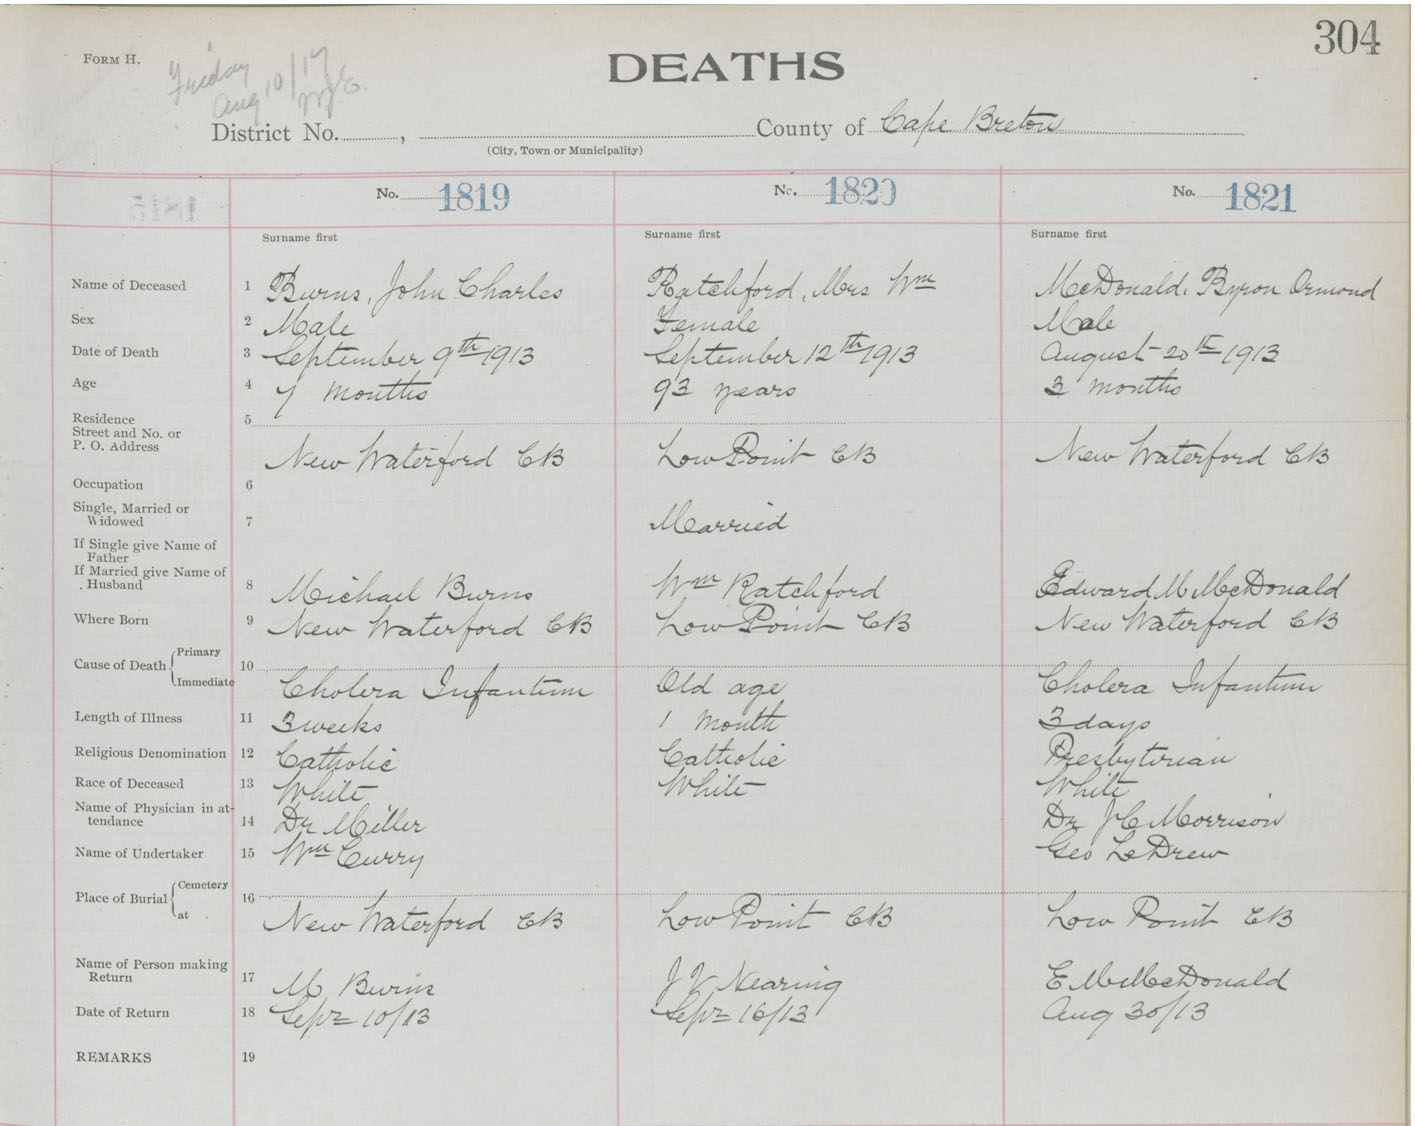 304
FORM H.
Friday
Aug 10/17
DEATHS
District No. , County of Cape Breton
(City, Town or Municipality)
No. 1819 No. 1820 No. 1821
Surname first Surname first Surname first
Name of Deceased 1 Burns, John Charles Ratchford, Mrs Wm McDonald, Byron Ormond
Sex 2 Male Female Male
Date of Death 3 September 9th 1913 September 12th 1913 August 20th 1913
Age 4 7 months 93 years 3 months
Residence 5
Street and No. or
P. O. Address New Waterford CB Low Point CB New Waterford CB
Occupation 6
Single, Married or
Widowed 7 Married
If Single give Name of
Father
If Married give Name of
Husband 8 Michael Burns Wm Ratchford Edward M McDonald
Where Born 9 New Waterford CB Low Point CB New Waterford CB
Cause of Death Primary 10
Immediate Cholera Infantum Old age Cholera Infantum
Length of Illness 11 3 weeks 1 month 3 days
Religious Denomination 12 Catholic Catholic Presbyterian
Race of Deceased 13 White White White
Name of Physician in at-
tendance 14 Dr Miller Dr J C Morrison
Name of Undertaker 15 Wm Curry Geo LeDrew
Place of Burial Cemetery 16
at New Waterford CB Low Point CB Low Point CB
Name of Person making
Return 17 M Burns J V Nearing E M McDonald
Date of Return 18 Sept 10/13 Sept 16/13 Aug 30/13
REMARKS 19